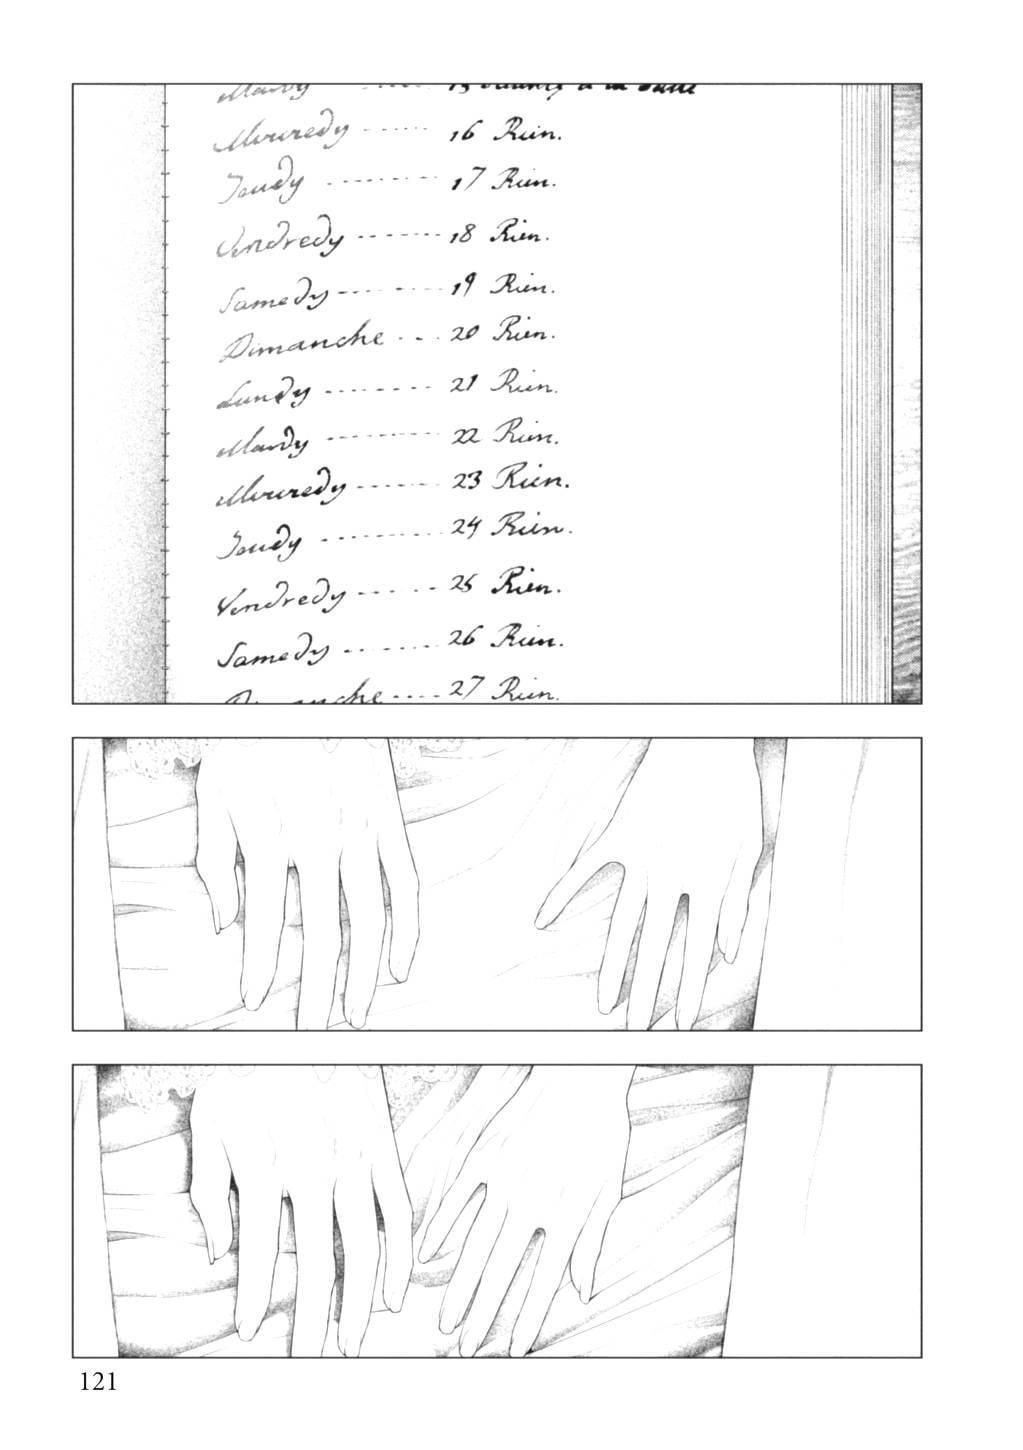 Mardy ------- 15
Mercredy ------ 16 Rien.
Jeudy --------- 17 Rien.
Vendredy ------- 18 Rien.
Samedy --------- 19 Rien.
Dimanche --- 20 Rien.
Lundy -------- 21 Rien.
Mardy --------- 22 Rien.
Mercredy ------ 23 Rien.
Jeudy --------- 24 Rien.
Vendredy ----- 25 Rien.
Samedy ------- 26 Rien.
Dimanche ---- 27 Rien.
121